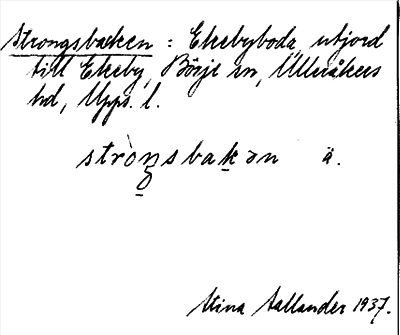 Strongsbacken : Ekebyboda, utjord
till Ekeby, Börje sn, Ulleråkers
hd, Upps. l.
stròŋsbakən ä.
Stina Aallander 1937.